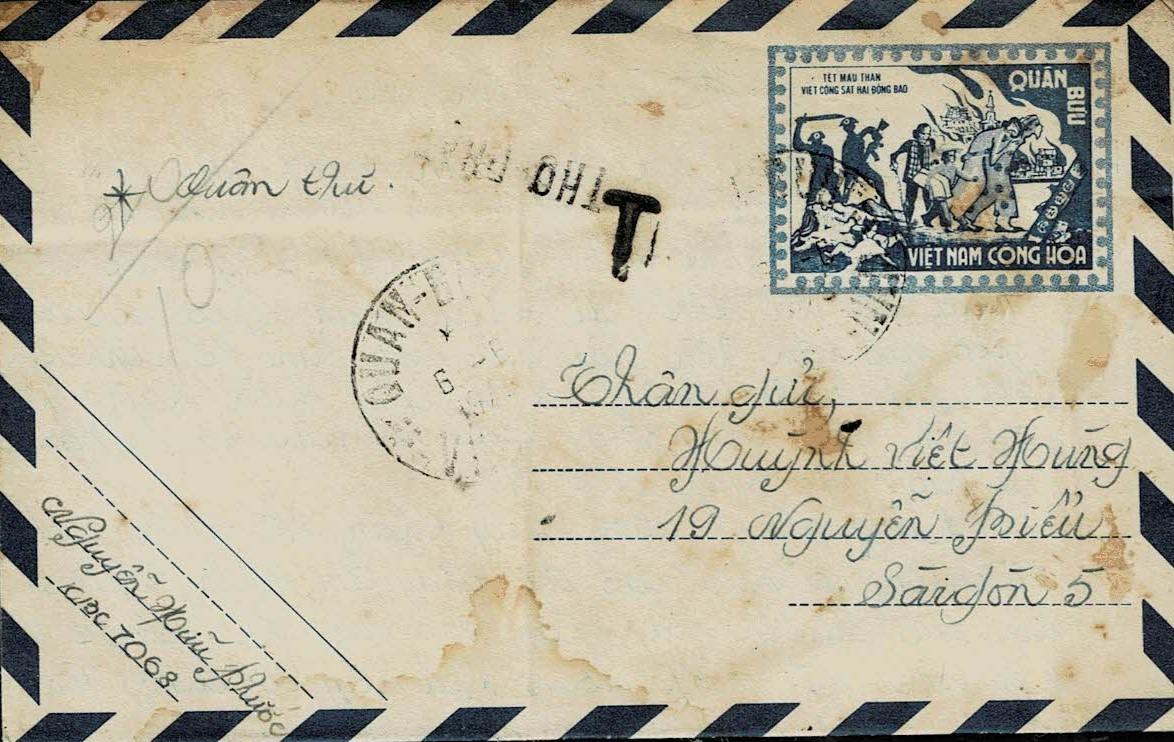 TẾT MẬU THÂN
VIỆT CỘNG SÁT HẠI ĐỒNG BÀO
QUÂN
BƯU
VIỆT NAM CỘNG HÒA
Quân thư.
THƠ
T
10
QUAN-B
6
Thân gửi,
Huỳnh Việt Hùng
19 Nguyễn Biểu
Sàigòn 5
Nguyễn Hữu Phước
KBC 7063